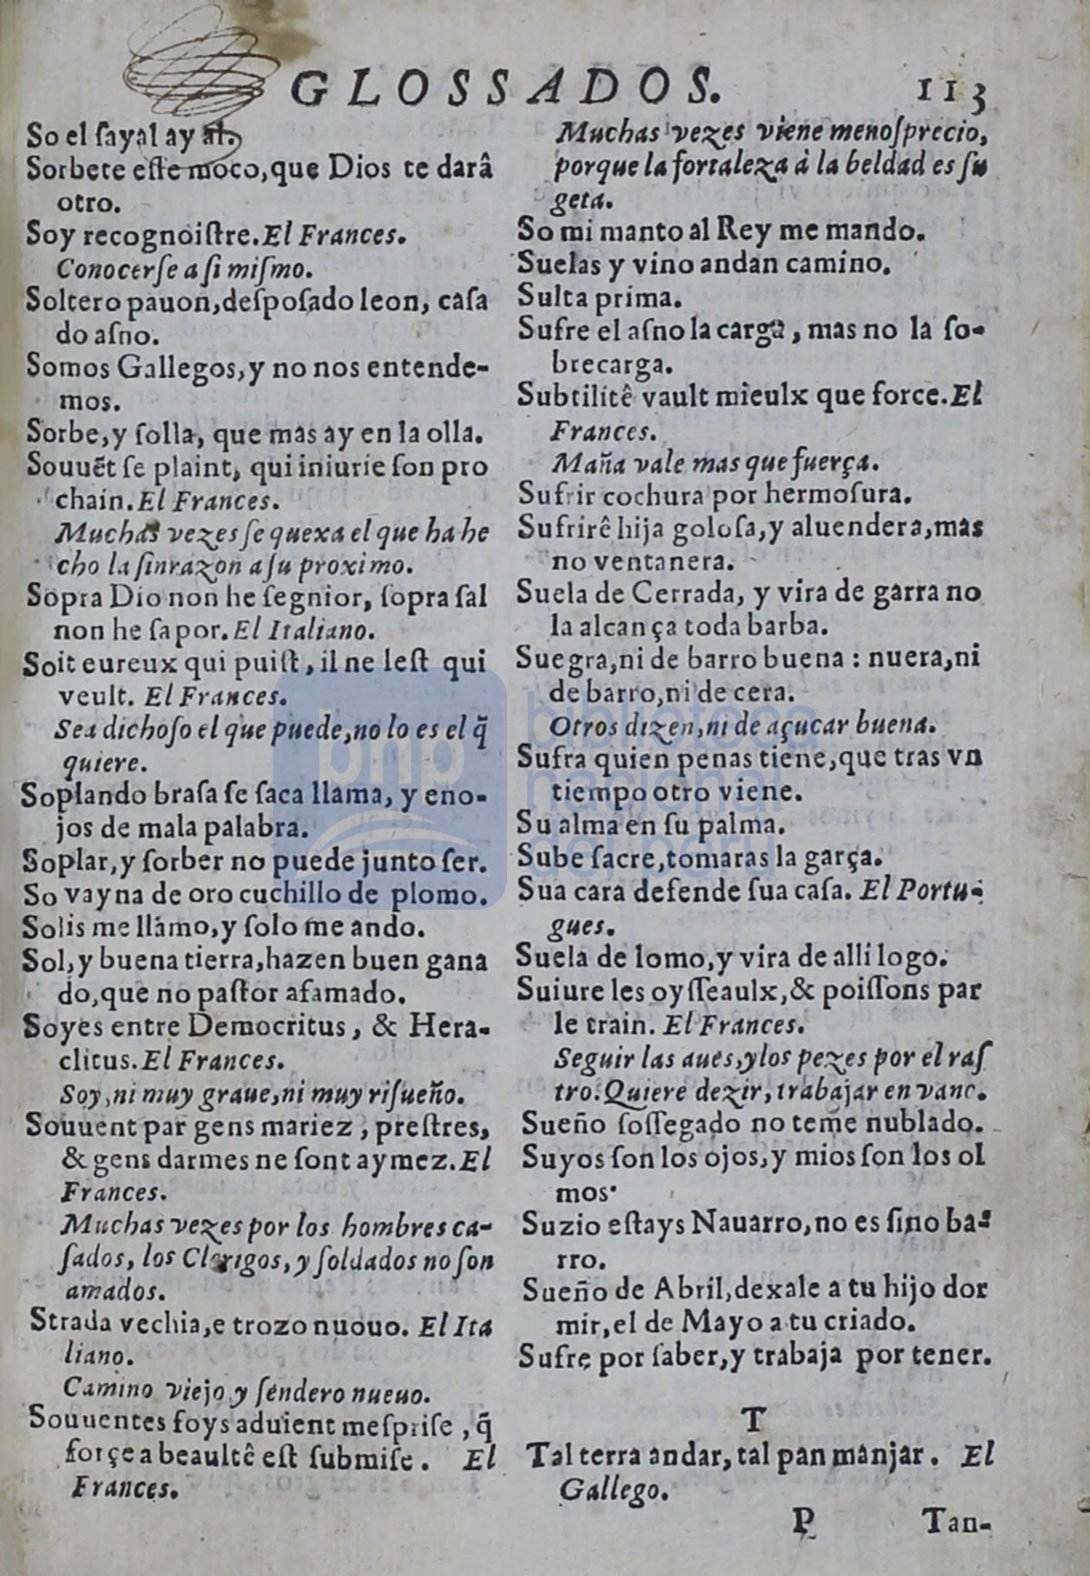 GLOSSADOS. 113
So el ſayal ay al.
Sorbete eſte moco, que Dios te darâ
otro.
Soy recognoiſtre. El Frances.
Conocerſe a ſi miſmo.
Soltero pauon, deſpoſado leon, caſa
do aſno.
Somos Gallegos, y no nos entende-
mos.
Sorbe, y ſolla, que mas ay en la olla.
Souuẽt ſe plaint, qui iniurie ſon pro
chain. El Frances.
Muchas vezes ſe quexa el que ha he
cho la ſinrazon a ſu proximo.
Sopra Dio non he ſegnior, ſopra ſal
non he ſapor. El Italiano.
Soit eureux qui puiſt, il ne leſt qui
veult. El Frances.
Sea dichoſo el que puede, no lo es el q̃
quiere.
Soplando braſa ſe ſaca llama, y eno-
jos de mala palabra.
Soplar, y ſorber no puede junto ſer.
So vayna de oro cuchillo de plomo.
Solis me llamo, y ſolo me ando.
Sol, y buena tierra, hazen buen gana
do, que no paſtor afamado.
Soyes entre Democritus, & Hera-
clitus. El Frances.
Soy, ni muy graue, ni muy riſueño.
Souuent par gens mariez, preſtres,
& gens darmes ne ſont aymez. El
Frances.
Muchas vezes por los hombres ca-
ſados, los Clerigos, y ſoldados no ſon
amados.
Strada vechia, e trozo nuouo. El Ita
liano.
Camino viejo y ſendero nueuo.
Souuentes foys aduient meſpriſe, q̃
forçe a beaultê eſt ſubmiſe. El
Frances.
Muchas vezes viene menoſprecio,
porque la fortaleza à la beldad es ſu
geta.
So mi manto al Rey me mando.
Suelas y vino andan camino.
Sulta prima.
Sufre el aſno la carga, mas no la ſo-
brecarga.
Subtilitê vault mieulx que force. El
Frances.
Maña vale mas que fuerça.
Sufrir cochura por hermoſura.
Sufrirê hija goloſa, y aluendera, mas
no ventanera.
Suela de Cerrada, y vira de garra no
la alcança toda barba.
Suegra, ni de barro buena: nuera, ni
de barro, ni de cera.
Otros dizen, ni de açucar buena.
Sufra quien penas tiene, que tras vn
tiempo otro viene.
Su alma en ſu palma.
Sube ſacre, tomaras la garça.
Sua cara defende ſua caſa. El Portu-
gues.
Suela de lomo, y vira de alli logo.
Suiure les oyſſeaulx, & poiſſons par
le train. El Frances.
Seguir las aues, y los pezes por el raſ
tro. Quiere dezir, trabajar en vano.
Sueño ſoſſegado no teme nublado.
Suyos ſon los ojos, y mios ſon los ol
mos.
Suzio eſtays Nauarro, no es ſino ba-
rro.
Sueño de Abril, dexale a tu hijo dor
mir, el de Mayo a tu criado.
Sufre por ſaber, y trabaja por tener.
T
Tal terra andar, tal pan manjar. El
Gallego.
P Tan-
bnp biblioteca
nacional
del perú